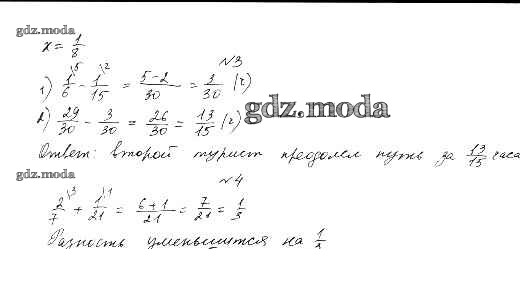 gdz.moda
x = 1/8
№3
1) 1/6 \5 - 1/15 \2 = 5-2/30 = 3/30 (г)
2) 29/30 - 3/30 = 26/30 = 13/15 (г)
gdz.moda
Ответ: второй турист преодолел путь за 13/15 часа
gdz.moda
№4
2/7 \3 + 1/21 \1 = 6+1/21 = 7/21 = 1/3
Разность уменьшится на